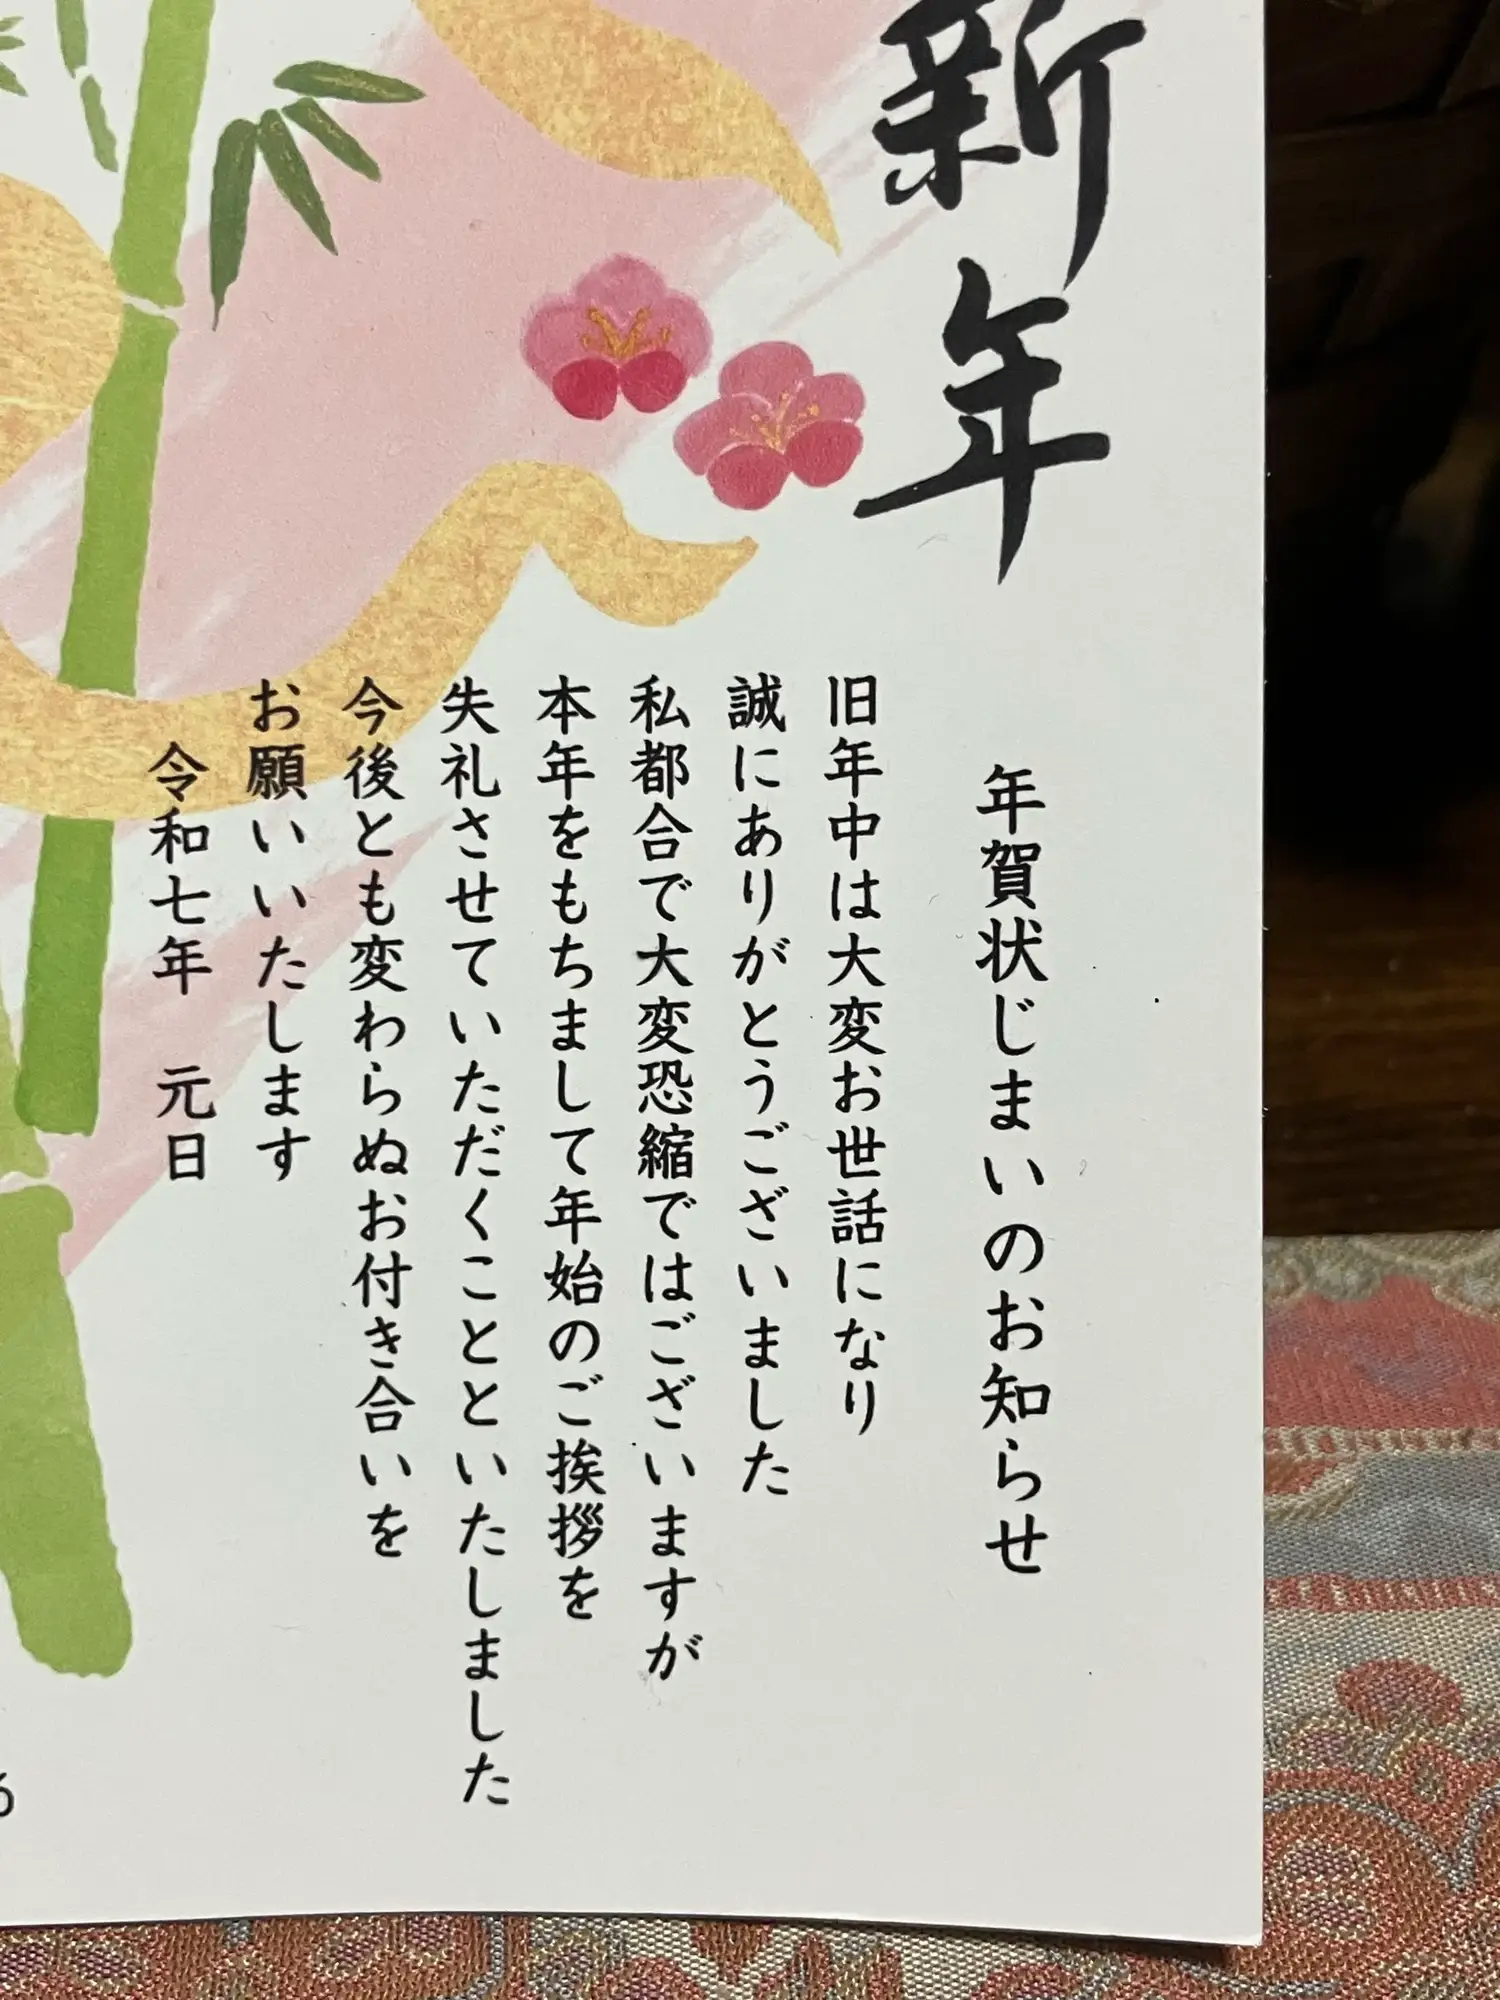 新年
年賀状じまいのお知らせ
旧年中は大変お世話になり
誠にありがとうございました
私都合で大変恐縮ではございますが
本年をもちまして年始のご挨拶を
失礼させていただくことといたしました
今後とも変わらぬお付き合いを
お願いいたします
令和七年 元日
6